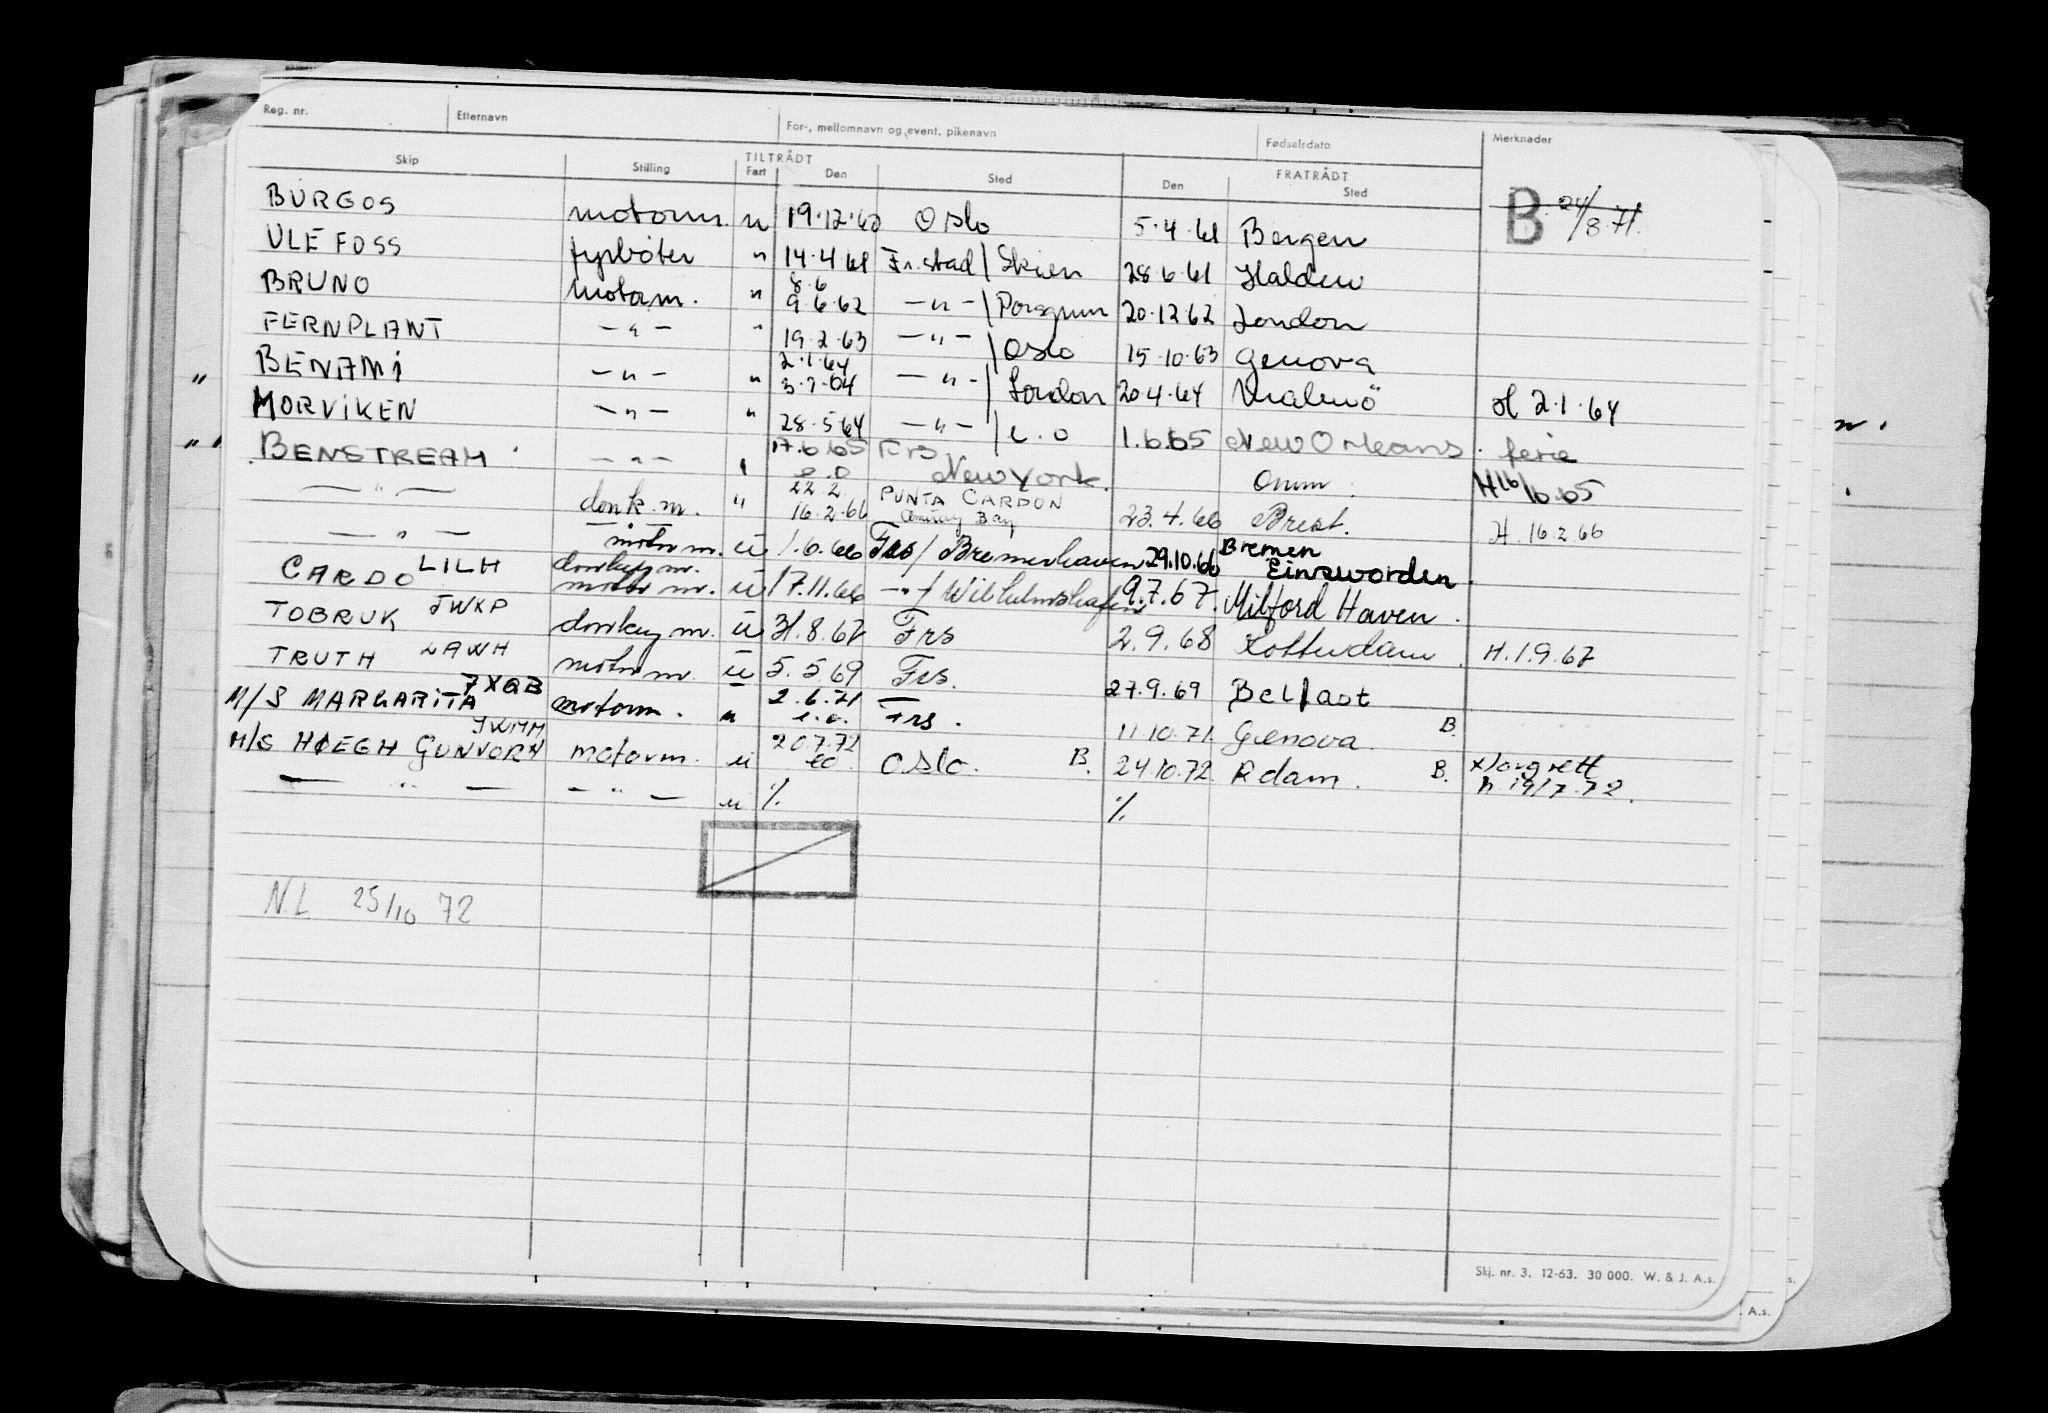 Reg. nr. Etternavn For-, mellomnavn og event. pikenavn Fødselsdato Merknader
Skip Stilling TILTRÅDT Fart Den Sted FRATRÅDT Den Sted
B 24/8.71.
BURGOS motorm. u 19.12.60 Oslo 5.4.61 Bergen
ULEFOSS fyrbøter " 14.4.61 Fr.stad / Skien 28.6.61 Halden
BRUNO motorm. " 8.6 9.6.62 — " — / Porsgrunn 20.12.62 London
FERNPLANT — " — " 19.2.63 — " — / Oslo 15.10.63 Genova
" BENAMI — " — " 2.1.64 3.1.64 — " — / London 20.4.64 Malmö H 2.1.64
MORVIKEN — " — " 28.5.64 — " — / e.o 1.6.65 New Orleans. ferie
" BENSTREAM — " — " 17.6.65 e.o Frs New York. Omm. H16/6.65
— " — donk.m. " 22.2 16.2.66 PUNTA CARDON Amuay Bay 23.4.66 Brest. H. 16.2.66
— " — motor m. u 1.6.66 Frs / Bremerhaven 29.10.66 Bremen Einsworden
CARDO LILH donkey m. motor m. u 17.11.66 — " — / Wilhelmshafen 9.7.67. Milford Haven.
TOBRUK JWXP donkey m. u 31.8.67 Frs 2.9.68 Rotterdam. H.1.9.67
TRUTH LAWH motor m. u 5.5.69 Frs. 27.9.69 Belfast
M/S MARGARITA JXQB motorm. " 2.6.71 e.o. Frs. 11.10.71 Genova. B.
M/S HØEGH GUNVOR JWMM motorm. u 20.7.72 eo. Oslo. B. 24.10.72. Rdam. B. h. 19/7.72.
— " — — " — u % %
N.L 25/10 72
Skj. nr. 3. 12-63. 30 000. W. & J. A.s.
A.s.